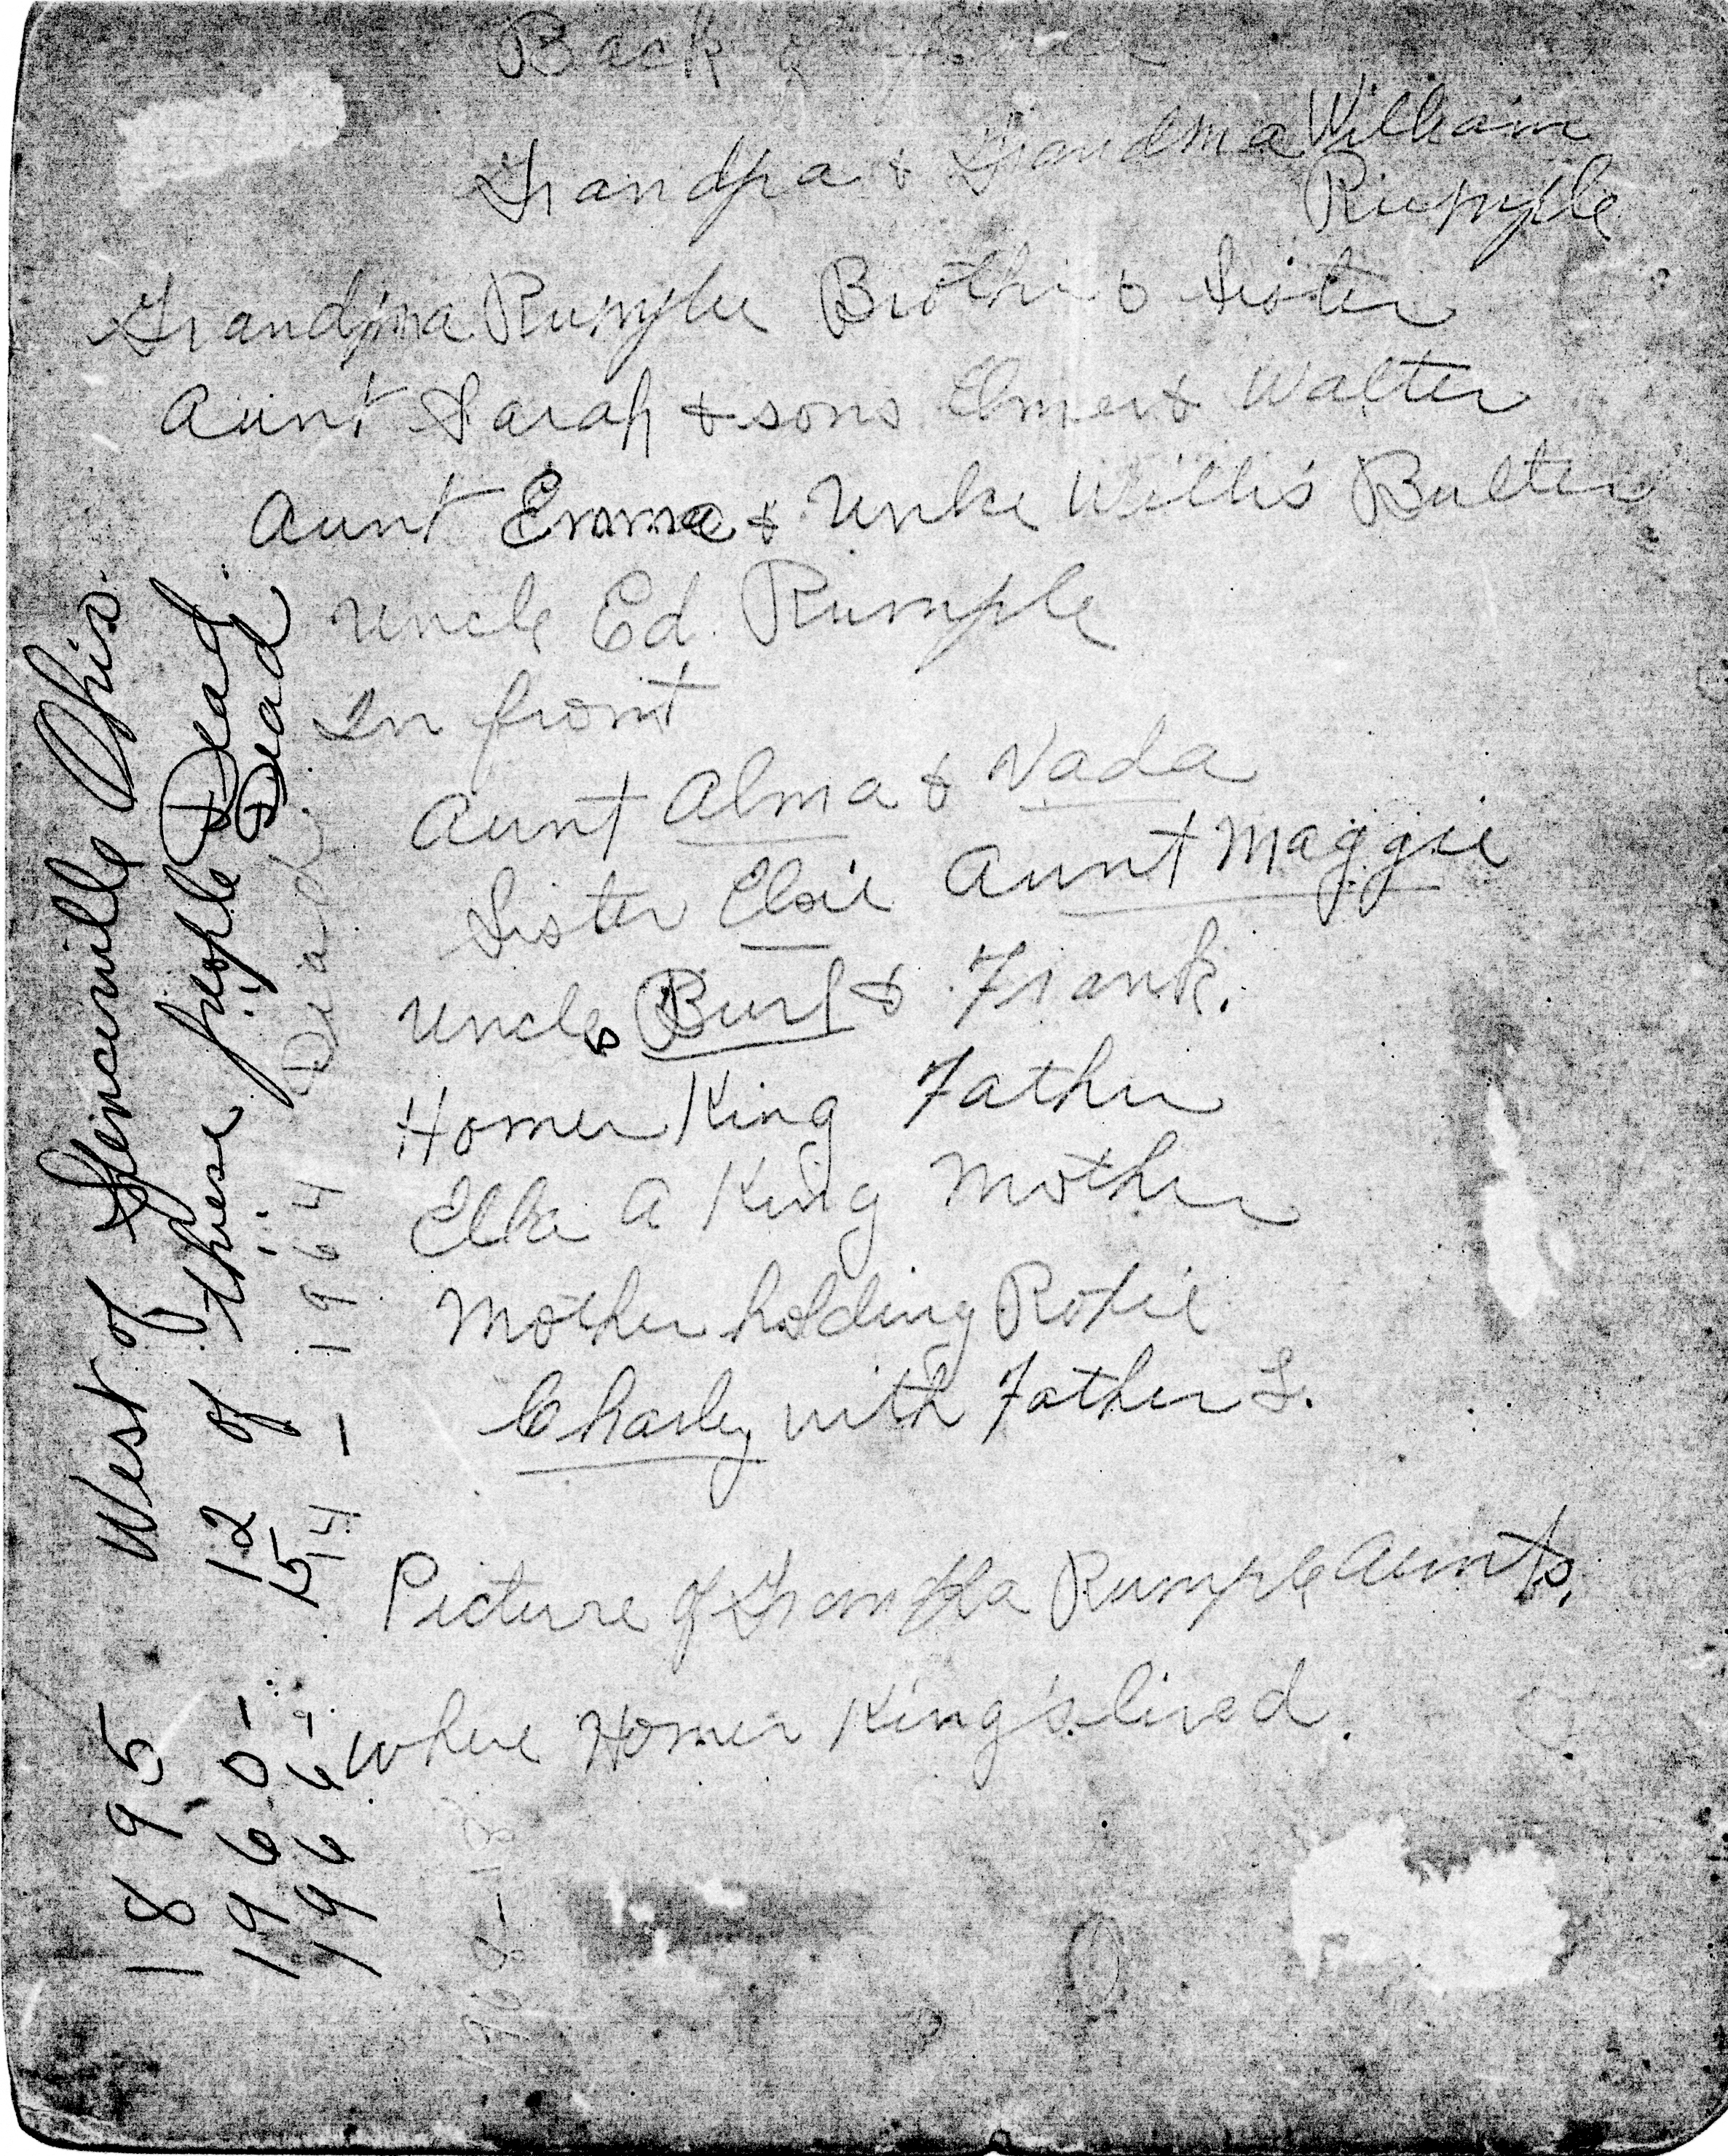 Back of
Grandpa & Grandma William
Rumple
Grandma Rumple Brother & Sister
Aunt Sarah & sons Elmer & Walter
Aunt Emma & Unlce Willis Butler
Uncle Ed. Rumple
In front
Aunt Alma & Vada
Sister Elsie Aunt Maggie
Uncles Burl & Frank.
Homer King Father
Ella A King Mother
Mother holding Roxie
Charley with Father
Picture of Rumple Aunts.
where Homer King's lived.
1895 West of Spencerville Ohio.
1960 - 12 of these people Dead
15 Dead
14 - 1964 Dead